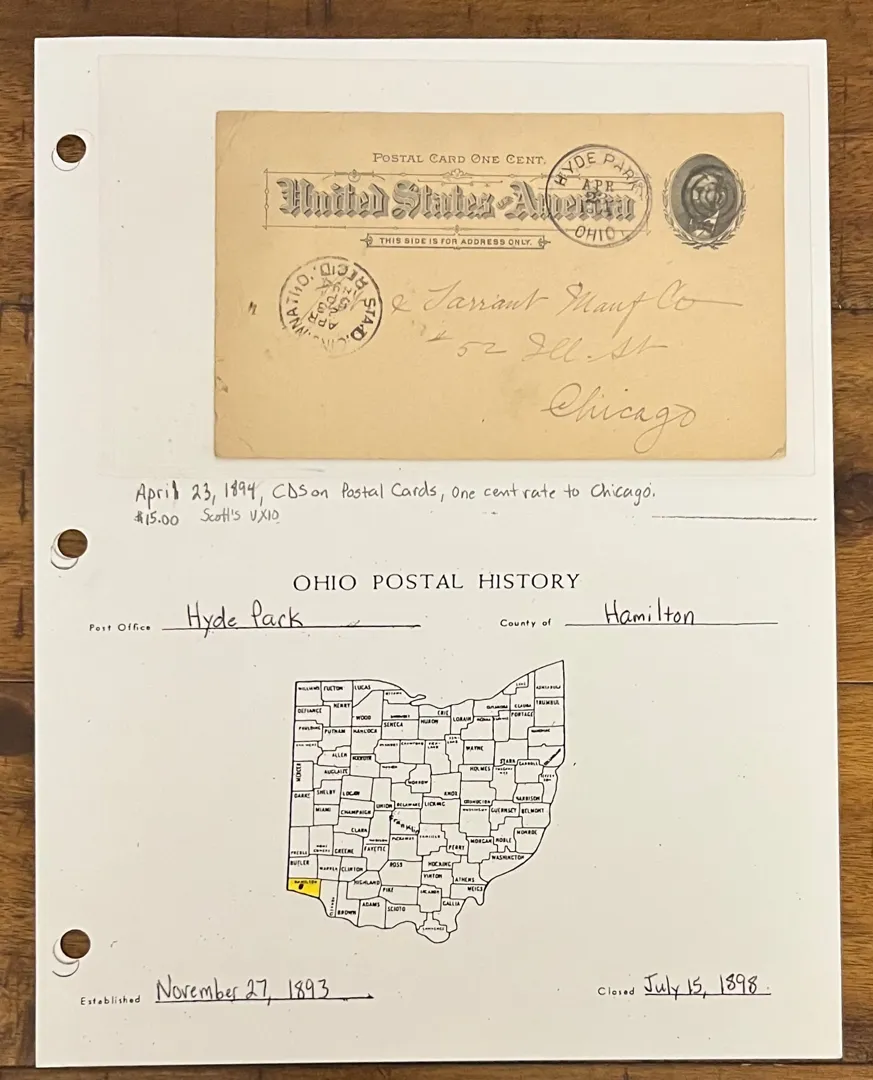 POSTAL CARD ONE CENT.
United States of America
THIS SIDE IS FOR ADDRESS ONLY.
HYDE PARK
APR
OHIO
STA. D. CINCINNATI, O.
REC'D.
APR
& Tarrant Manf Co
# 52 Ill. St
Chicago
April 23, 1894, CDS on Postal Cards, One cent rate to Chicago.
$15.00 Scott's UX10
OHIO POSTAL HISTORY
Post Office Hyde Park County of Hamilton
WILLIAMS FULTON LUCAS OTTAWA LAKE ASHTABULA
DEFIANCE HENRY WOOD SANDUSKY ERIE LORAIN CUYAHOGA GEAUGA TRUMBULL
PAULDING PUTNAM HANCOCK SENECA HURON MEDINA SUMMIT PORTAGE MAHONING
VAN WERT ALLEN WYANDOT CRAWFORD RICHLAND ASHLAND WAYNE STARK CARROLL COLUMBIANA
MERCER AUGLAIZE HARDIN MARION MORROW HOLMES TUSCARAWAS JEFFERSON
DARKE SHELBY LOGAN UNION DELAWARE KNOX COSHOCTON HARRISON
MIAMI CHAMPAIGN LICKING MUSKINGUM GUERNSEY BELMONT
CLARK MADISON Franklin FAIRFIELD PERRY MORGAN NOBLE MONROE
PREBLE MONTGOMERY GREENE FAYETTE PICKAWAY HOCKING WASHINGTON
BUTLER WARREN CLINTON ROSS VINTON ATHENS
HAMILTON CLERMONT HIGHLAND PIKE JACKSON MEIGS
BROWN ADAMS SCIOTO GALLIA
LAWRENCE
Established November 27, 1893 Closed July 15, 1898.